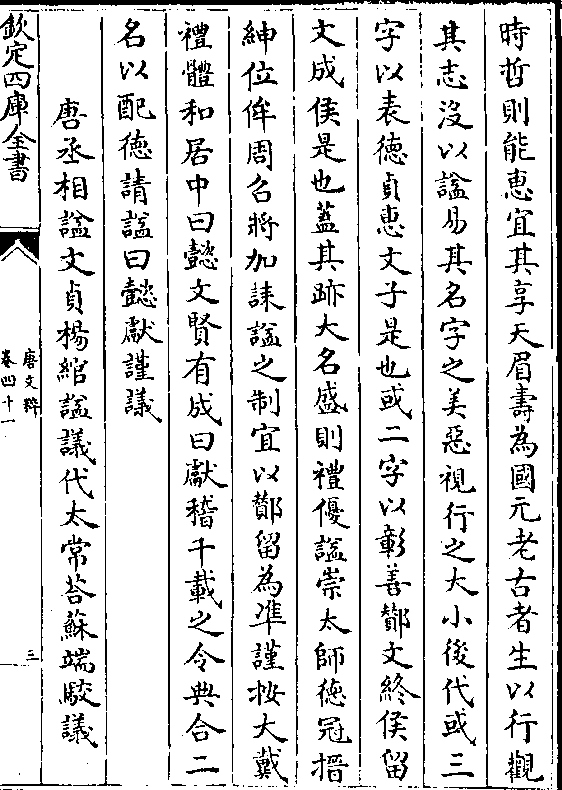 時哲則能惠宜其享天眉壽為國元老古者生以行觀
其志沒以諡易其名字之美惡視行之大小後代或三
字以表德貞惠文子是也或二字以彰善酇文終侯留
文成侯是也蓋其跡大名盛則禮優諡崇太師德冠搢
紳位侔周召將加誄諡之制宜以酇留為準謹按大戴
禮體和居中曰懿文賢有成曰獻稽千載之令典合二
名以配德請諡曰懿獻謹議
唐丞相諡文貞楊綰諡議代太常荅蘇端駮議
欽定四庫全書
唐文粹
卷四十一
三